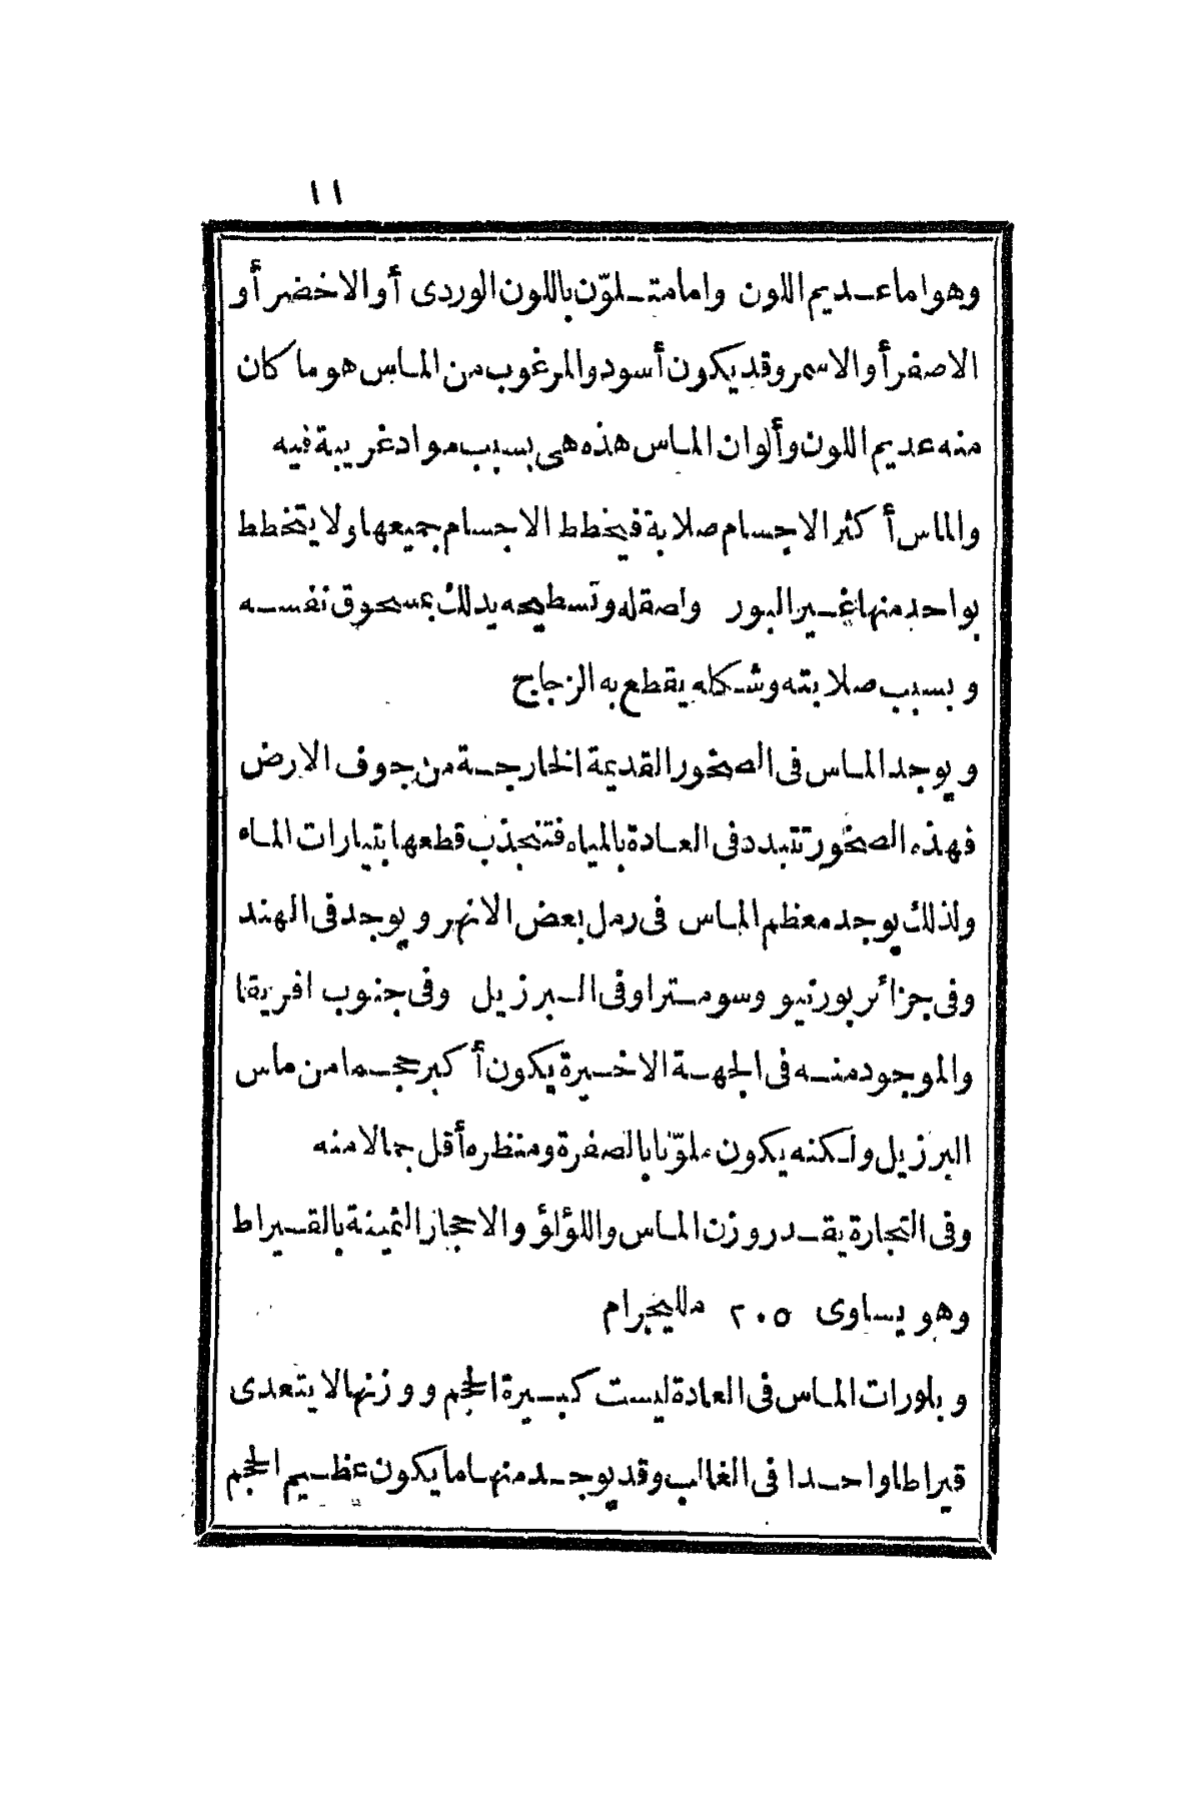 ١١
وهو اما عديم اللون واما متلوّن باللون الوردى أو الاخضر أو
الاصفر أو الاسمر وقد يكون أسود والمرغوب من الماس هو ما كان
منه عديم اللون وألوان الماس هذه هى بسبب مواد غريبة فيه
والماس أكثر الاجسام صلابة فيخطط الاجسام جميعها ولا يتخطط
بواحد منها غير البور واصقله وتسطيحه يدلك بمسحوق نفسه
وبسبب صلابته وشكله يقطع به الزجاج
ويوجد الماس فى الصخور القديمة الخارجة من جوف الارض
فهذه الصخور تتبدد فى العادة بالمياه فتنجذب قطعها بتيارات الماء
ولذلك يوجد معظم الماس فى رمل بعض الانهر ويوجد فى الهند
وفى جزائر بورنيو وسومترا وفى البرزيل وفى جنوب افريقا
والموجود منه فى الجهة الاخيرة يكون أكبر حجما من ماس
البرزيل ولكنه يكون ملوّنا بالصفرة ومنظره أقل جمالا منه
وفى التجارة يقدر وزن الماس واللؤلؤ والاحجار الثمينة بالقيراط
وهو يساوى ٢٠٥ ملليجرام
وبلورات الماس فى العادة ليست كبيرة الحجم ووزنها لا يتعدى
قيراطا واحدا فى الغالب وقد يوجد منها ما يكون عظيم الحجم